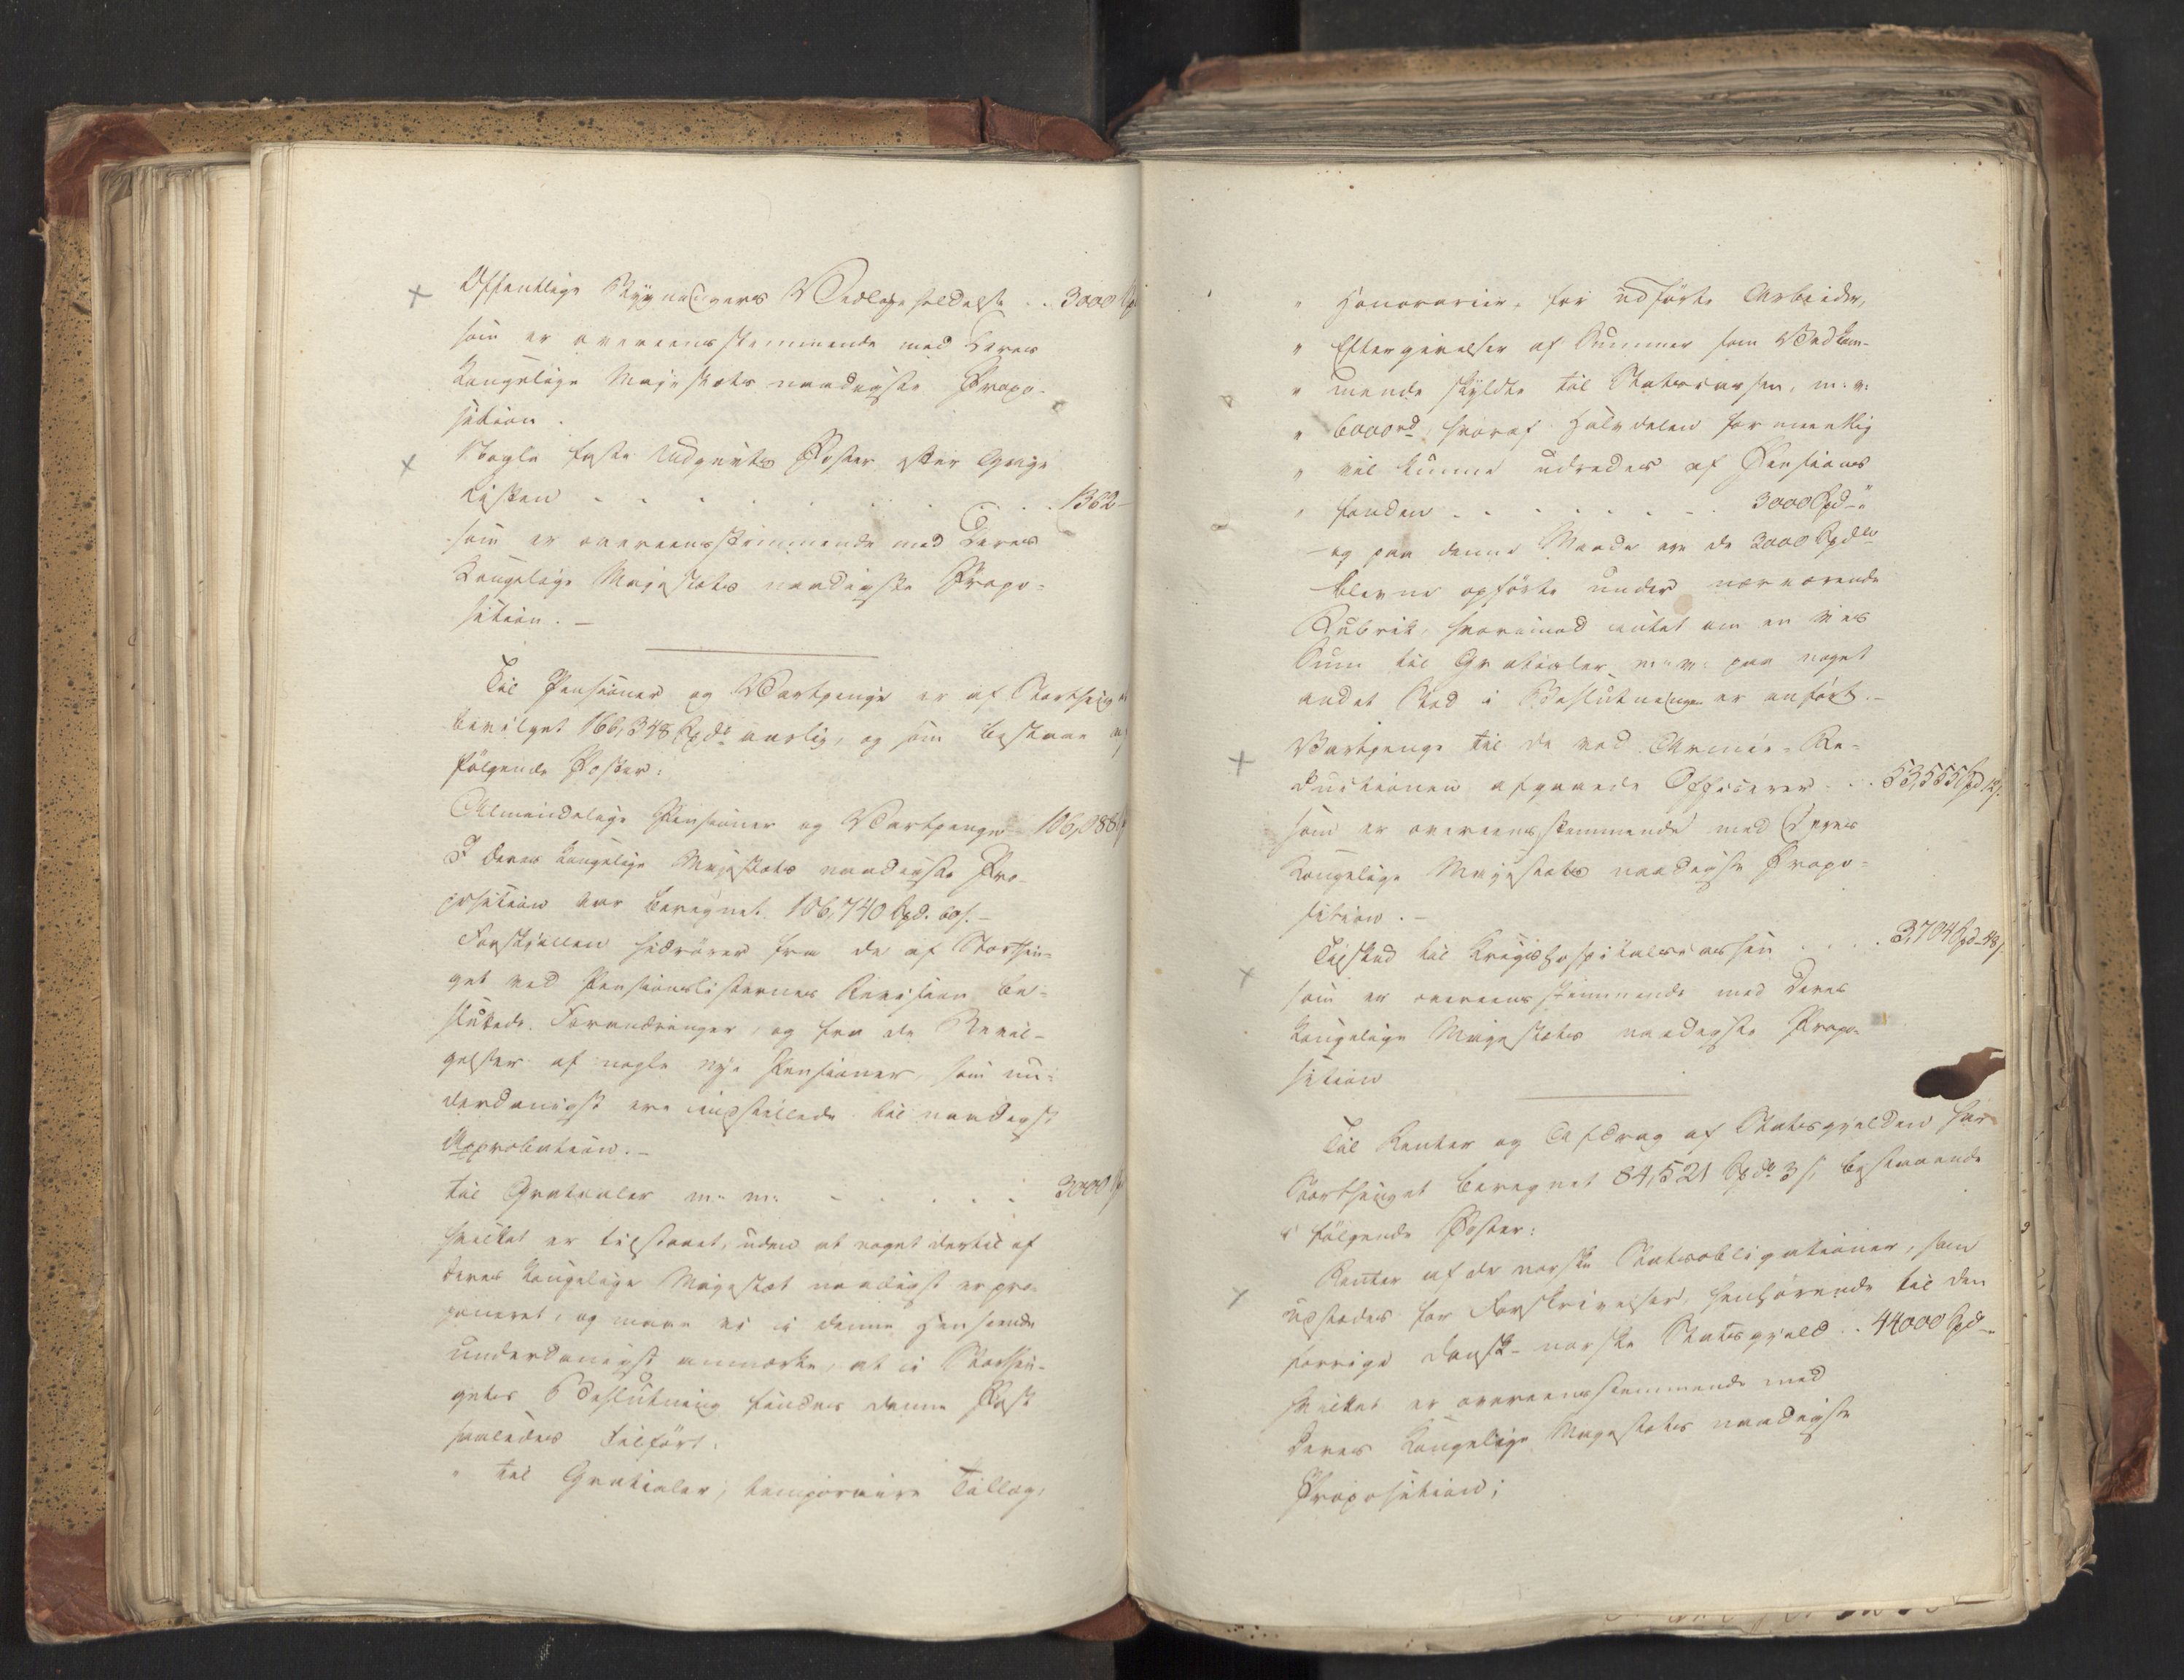 Offentlige Bygningers Vedligeholdelse . . 3000 Sp
som er overeensstemmende med Deres
Kongelige Majestæts naadigste Propo-
sition.
Nogle faste Udgivts Poster efter Gage
Listen . . . . . . . . 1362-
som er overeensstemmende med Deres
Kongelige Majestæts naadigste Propo-
sition. –
Til Pensioner og Vartpenge er af Storthinget
bevilget 166,348 Spd. aarlig, og som bestaae af
følgende Poster:
Almindelige Pensioner og Vartpenge 106,088
I Deres Kongelige Majestæts naadigste Pro-
position var beregnet 106,740 Spd. 60 s. –
Forskjellen hidrører fra de af Storthin-
get ved Pensionslisternes Revision be-
sluttede Forandringer, og fra de Bevil-
gelser af nogle nye Pensioner, som un-
derdanigst ere indstillede til naadigst
Approbation. –
Til Gratialer m: m: - . . . . 3000 Sp
hvilket er tilstaaet, uden at noget dertil af
Deres Kongelige Majestæt naadigst er pro-
poneret, og maae vi i denne Henseende
underdanigst anmærke, at i Storthin-
gets Beslutning findes denne Post
saaledes tilført:
" til Gratialer, temporaire Tillæg,
" Honorarier, for udførte Arbeider,
" Eftergivelser af Summer som Vedkom-
" mende skyldte til Statscassen, m: v:
" 6000 rd, hvoraf Halvdelen formeentlig
" vil kunne udredes af Pensions
" fonden . . . . . . . 3000 Spd - "
- og paa denne Maade ere de 3000 Spdlr
blevne opførte under nærværende
Rubrik, hvorimod intet om en vis
Sum til Gratialer m: v: paa noget
andet Sted i Beslutningen er anført. –
Vartpenge til de ved Armée-Re-
ductionen afgaaede Officerer . . 53,555 Spd 12 s.
som er overeensstemmende med Deres
Kongelige Majestæts naadigste Propo-
sition. –
Tilskud til Krigshospitalscassen . . . . 3,704 Spd - 48 s.
som er overeensstemmende med Deres
Kongelige Majestæts naadigste Propo-
sition
Til Renter og Afdrag af Statsgjelden har
Storthinget beregnet 84,521 Spdlr 3 s, bestaaende
i følgende Poster:
Renter af de norske Statsobligationer, som
udstedes for Forskrivelser, henhørende til den
forrige dansk-norske Statsgjeld . . 44000 Spd -
hvilket er overeensstemmende med
Deres Kongelige Majestæts naadigste
Proposition;